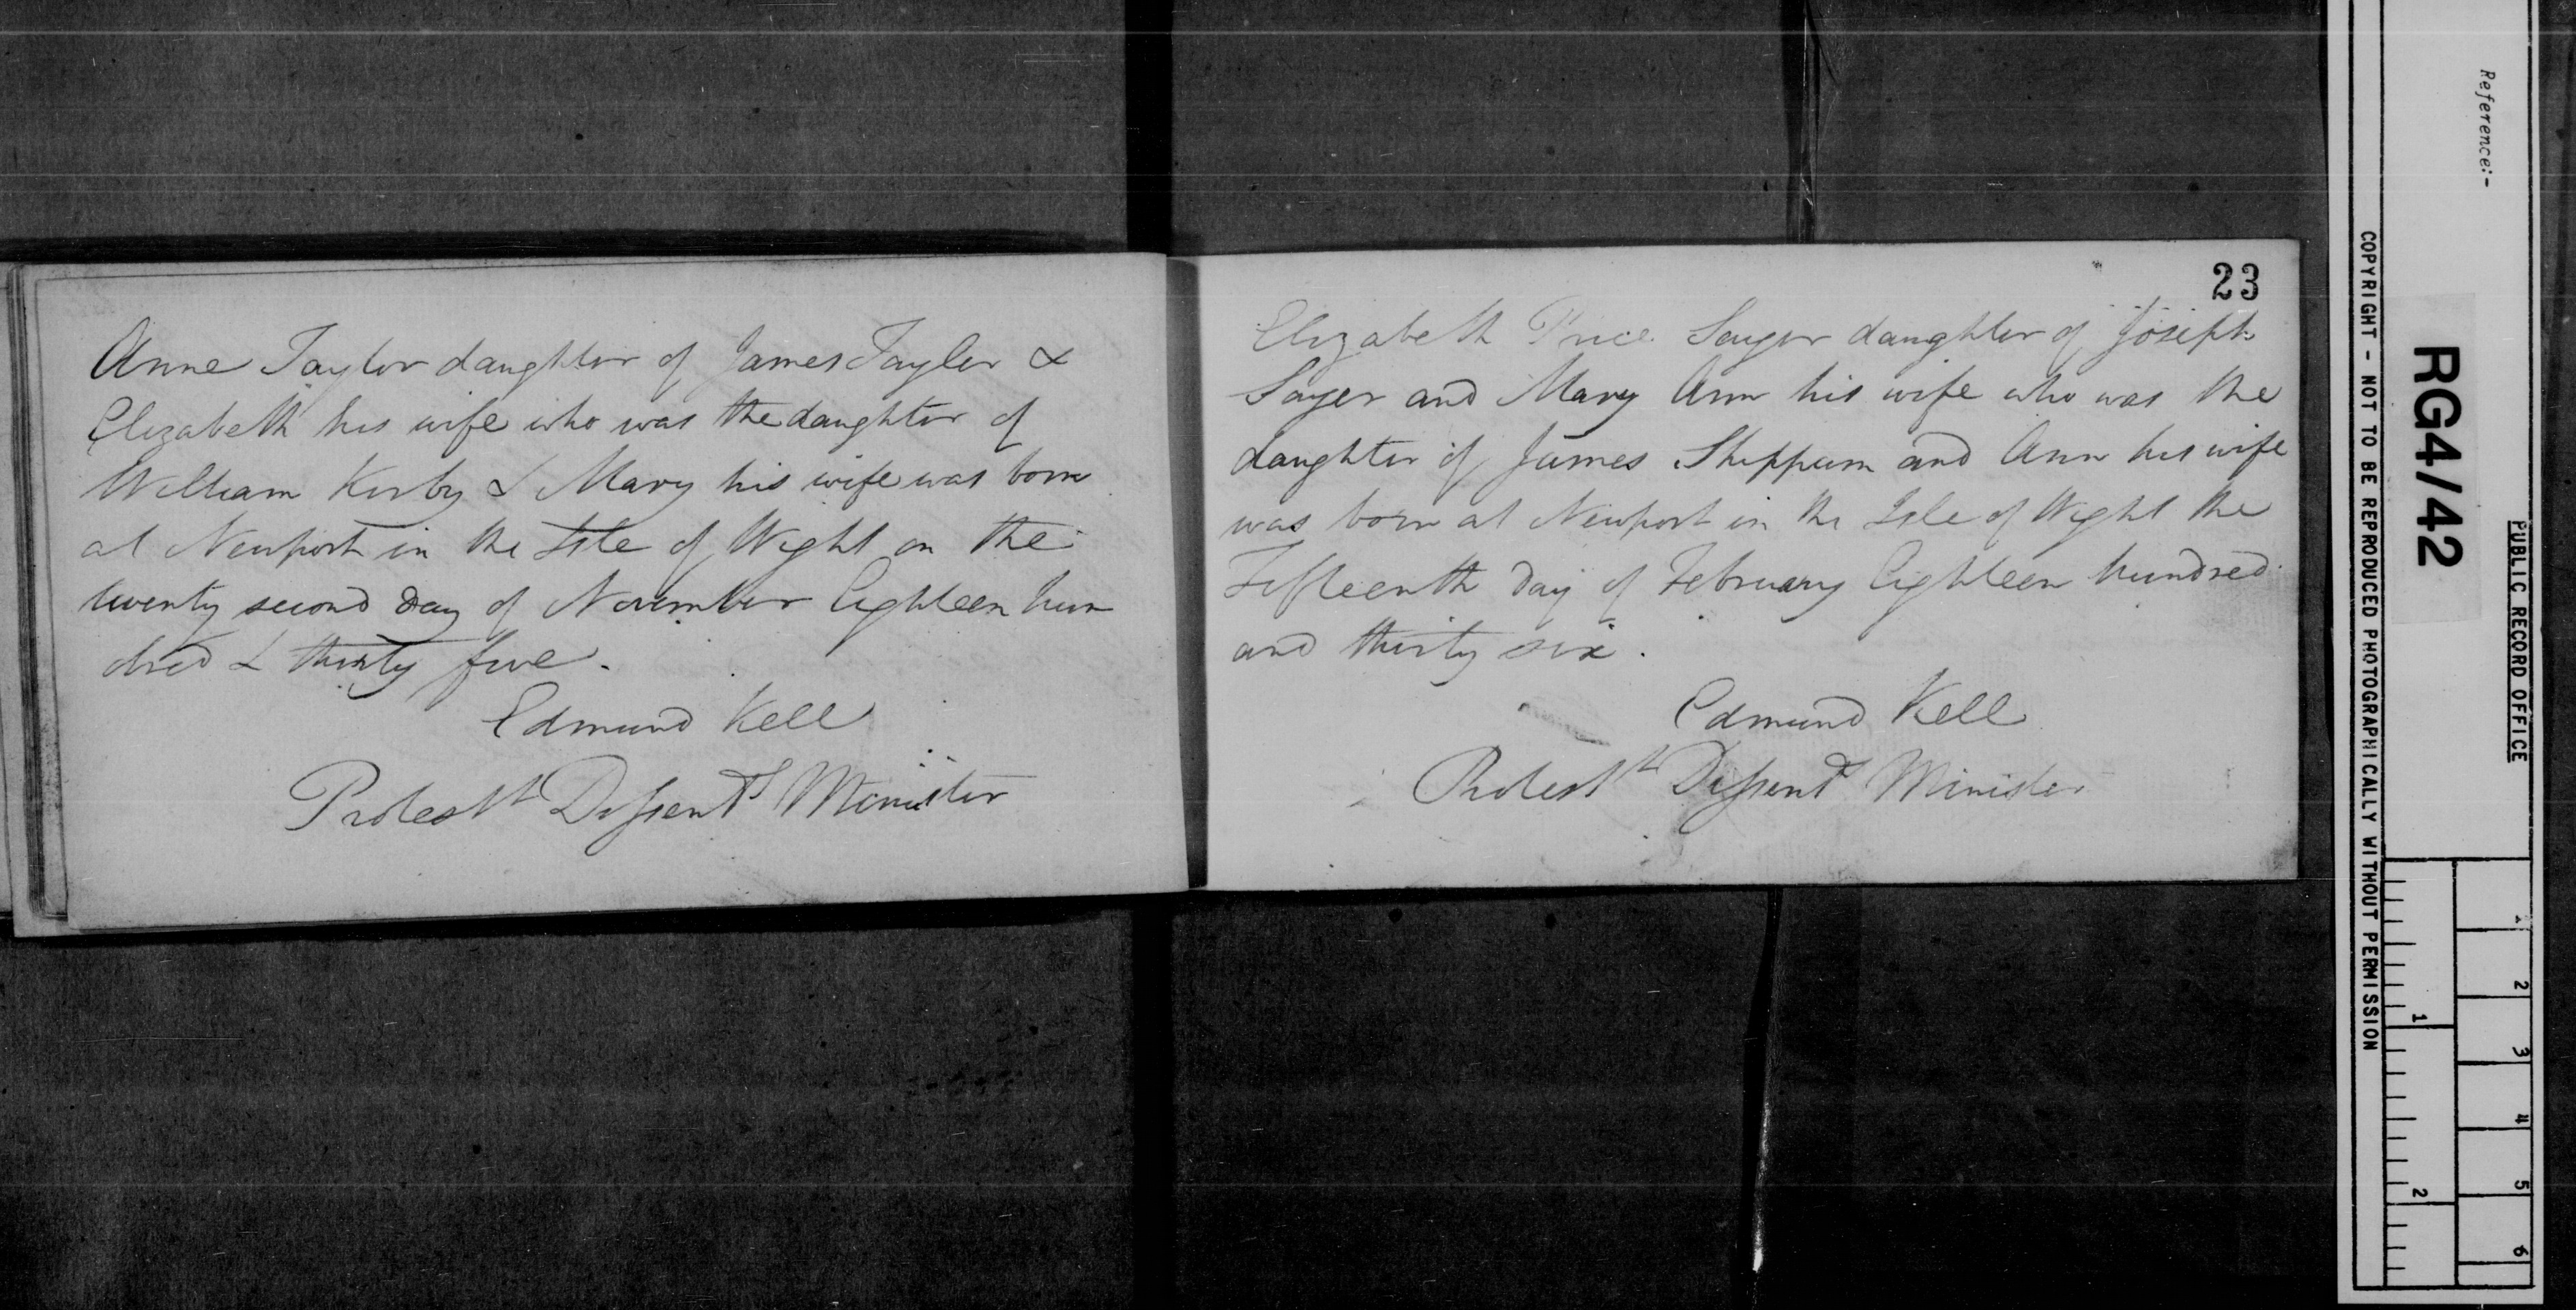 Anne Taylor daughter of James Tayler &
Elizabeth his wife who was the daughter of
William Kirby & Mary his wife was born
at Newport in the Isle of Wight on the
twenty second day of November Eighteen hun
dred & thirty five.
Edmund Kell
Protestt Dissentg Minister
23
Elizabeth Price Sayer daughter of Joseph
Sayer and Mary Ann his wife who was the
daughter of James Sheppum and Ann his wife
was born at Newport in the Isle of Wight the
Fifteenth day of February Eighteen hundred
and thirty six.
Edmund Kell
Protestt Dissentg Minister
COPYRIGHT - NOT TO BE REPRODUCED PHOTOGRAPHICALLY WITHOUT PERMISSION
Reference:-
RG4/42
PUBLIC RECORD OFFICE
1
2
1
2
3
4
5
6